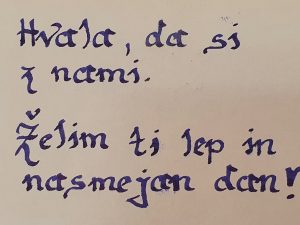 Hvala, da si
z nami.
Želim ti lep in
nasmejan dan!